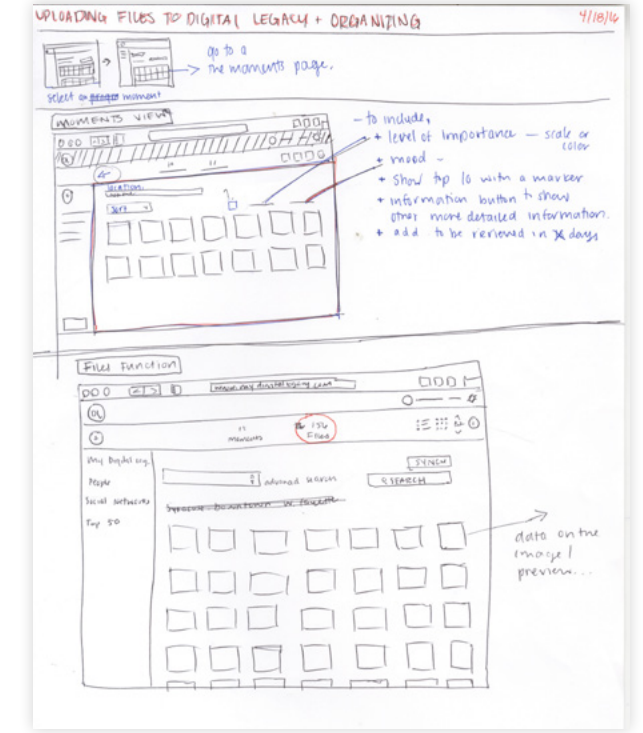 UPLOADING FILES TO DIGITAL LEGACY + ORGANIZING
4/18/16
go to a
the moments page.
select a moment
MOMENTS VIEW
- to include,
+ level of importance - scale or
color
+ mood -
+ Show top 10 with a marker
+ information button to show
other more detailed information.
+ add to be reviewed in X days
location
Sort
Files Function
www.my digital legacy.com
DL
17
moments
156
Files
My Digital Leg.
People
Social Networks
Top 50
SYNCH
advanced search
SEARCH
Syracuse Downtown w fayette
data on the
image /
preview...